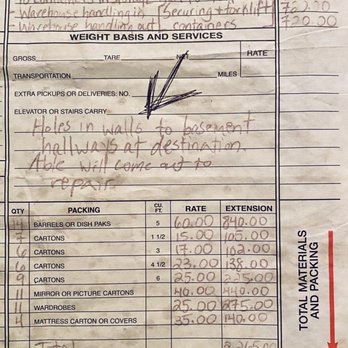 - Warehouse handling in (Securing + forklift) 720.00
- Warehouse handling out / containers 720.00
WEIGHT BASIS AND SERVICES
GROSS TARE NET RATE
TRANSPORTATION MILES
EXTRA PICKUPS OR DELIVERIES: NO.
ELEVATOR OR STAIRS CARRY
Holes in walls to basement
hallways at destination.
Able will come out to
repair.
QTY PACKING CU. FT. RATE EXTENSION
14 BARRELS OR DISH PAKS 5 60.00 840.00
7 CARTONS 1 1/2 15.00 105.00
6 CARTONS 3 17.00 102.00
6 CARTONS 4 1/2 23.00 138.00
9 CARTONS 6 25.00 225.00
11 MIRROR OR PICTURE CARTONS 40.00 440.00
11 WARDROBES 25.00 275.00
4 MATTRESS CARTON OR COVERS 35.00 140.00
Total 2,265.00
TOTAL MATERIALS
AND PACKING